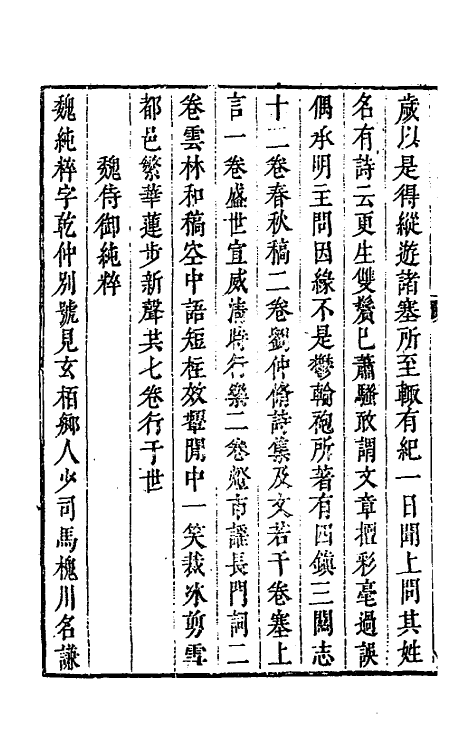 歲以是得縱遊諸塞所至輙有紀一日聞上問其姓
名有詩云更生雙鬂已蕭騷敢謂文章擅彩毫過誤
偶承明主問因緣不是鬱輪袍所著有四鎮三關志
十二卷春秋稿二卷劉仲脩詩集及文若干卷塞上
言一卷盛世宣威淸時行樂二卷燈市謡長門詞二
卷雲林和稿空中語短柱效顰閒中一笑裁冰剪雪
都邑繁華蓮步新聲共七卷行于世
魏侍御純粹
魏純粹字乾仲別號見玄栢鄉人少司馬槐川名謙